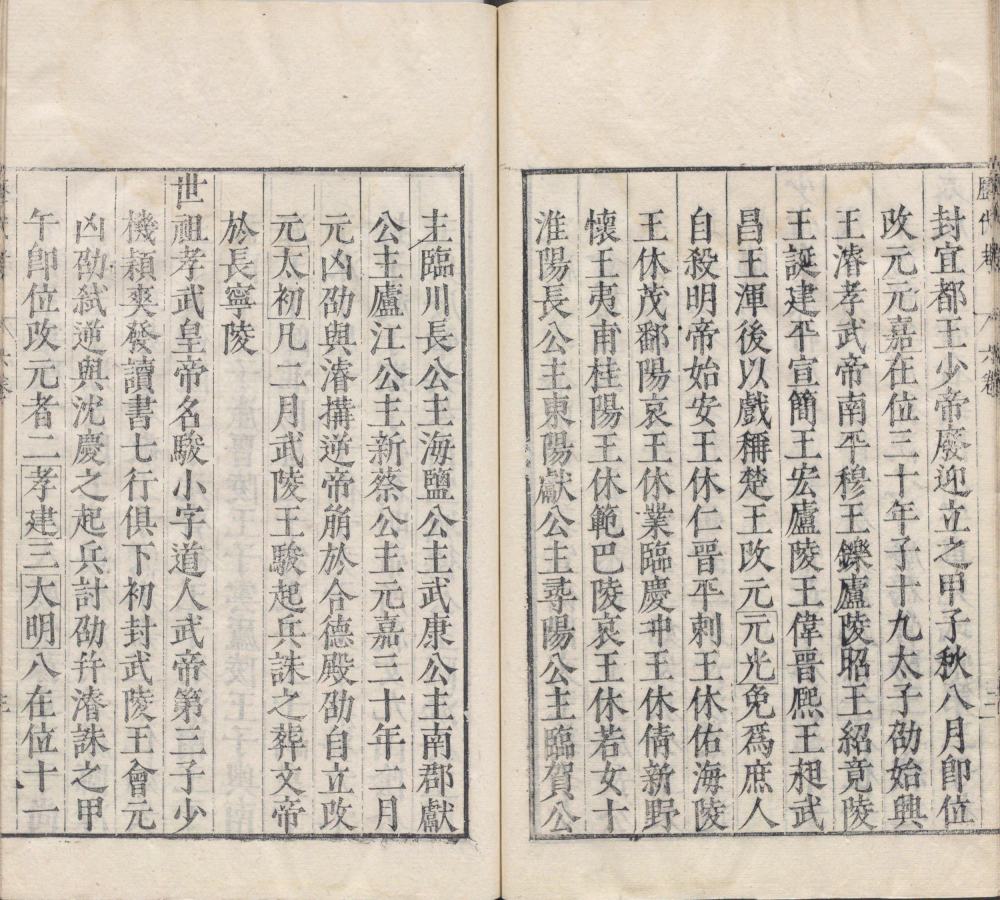 封宜都王少帝廢迎立之甲子秋八月卽位
改元元嘉在位三十年子十九太子劭始興
王濬孝武帝南平穆王鑠廬陵昭王紹竟陵
王誕建平宣簡王宏廬陵王偉晉熙王昶武
昌王渾後以戲稱楚王改元元光免爲庶人
自殺明帝始安王休仁晉平剌王休佑海陵
王休茂鄱陽哀王休業臨慶冲王休倩新野
懷王夷甫桂陽王休範巴陵哀王休若女十
淮陽長公主東陽獻公主尋陽公主臨賀公
主臨川長公主海鹽公主武康公主南郡獻
公主廬江公主新蔡公主元嘉三十年二月
元凶劭與濬搆逆帝崩於合德殿劭自立改
元太初凡二月武陵王駿起兵誅之葬文帝
於長寧陵
世祖孝武皇帝名駿小字道人武帝第三子少
機穎爽發讀書七行俱下初封武陵王會元
凶劭弑逆與沈慶之起兵討劭幷濬誅之甲
午卽位改元者二孝建三大明八在位十一